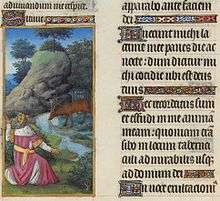 adiuvandum me respice.
apparebo ante faciem
dei
Fuerunt michi la
crime mee panes die ac
nocte: dum dicitur mi
chi cotidie ubi est deus
tuus
Hec recordatus sum
et effudi in me animam
meam: quoniam tran
sibo in locum taberna
culi admirabilis usq
ad domum dei
In voce exultationis